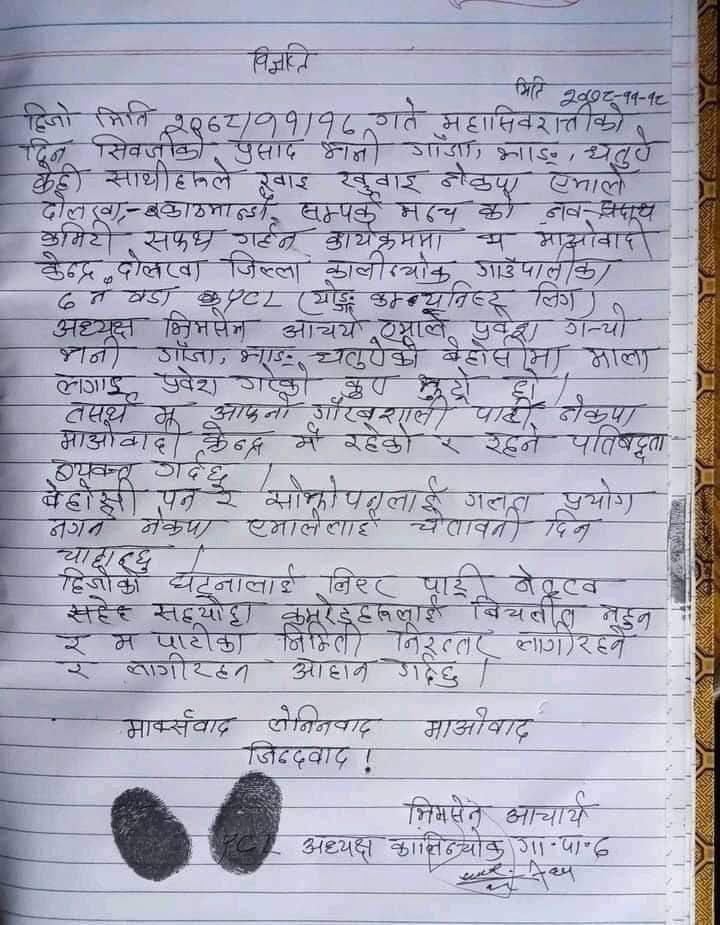 विज्ञप्ति
मिति २०७८-११-१८
हिजो मिति २०७८/११/१८ गते महासिवरात्रीको
दिन सिवजीको प्रसाद भनी गाँजा, भाङ, धतुरो
केही साथीहरूले ख्वाइ नेकपा एमाले
दोलखा,-काठमाण्डौ सम्पर्क मञ्च को नव-
कमिटी सफथ गर्हन कार्यक्रममा म माओवादी
केन्द्र दोलखा जिल्ला कालीन्चोक गाउँपालीका
६ नं वडा YCL (योङ्ग कम्यूनिस्ट लिग)
अध्यक्ष भिमसेन आचार्य एमाले प्रवेश गऱ्यो
भनी गाँजा, भाङ धतुरोको बेहोसीमा माला
लगाइ प्रवेश गरेको कुरा झुटो हो।
तसर्थ म आफ्नो गौरवशाली पार्टी नेकपा
माओवादी केन्द्र मै रहेको र रहने पतिबद्दता
व्यक्त गर्दछु।
बेहोसी पन र सोझोपनलाई गलत प्रयोग
नगर्न नेकपा एमालेलाई चेतावनी दिन
चाहन्छु।
हिजोको घटनालाई लिएर पार्टी नेतृत्व
सहयोद्दा कमरेडहरूलाई बिचलीत नुहुन
र म पार्टीका निम्ती निरन्तर लागीरहने
र लागीरहन आहान गर्दछु।
मार्क्सवाद लेनिनवाद माओवाद
जिन्दवाद!
भिमसेन आचार्य
YCL अध्यक्ष कालिन्चोक गा॰पा॰६